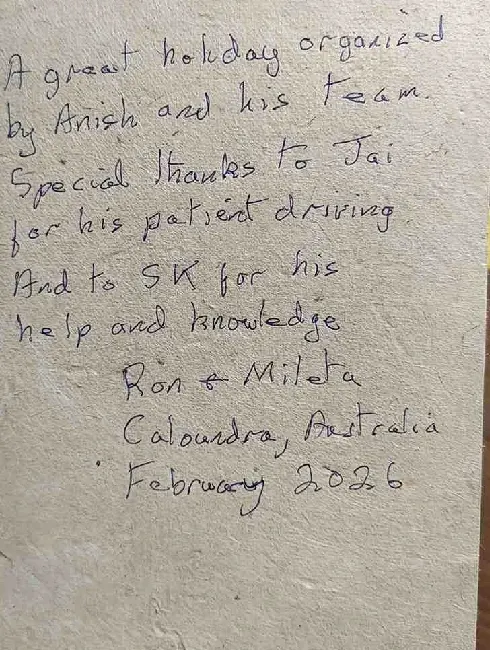 A great holiday organized
by Anish and his team.
Special thanks to Jai
for his patient driving
And to SK for his
help and knowledge
Ron + Mileta
Caloundra, Australia
February 2026